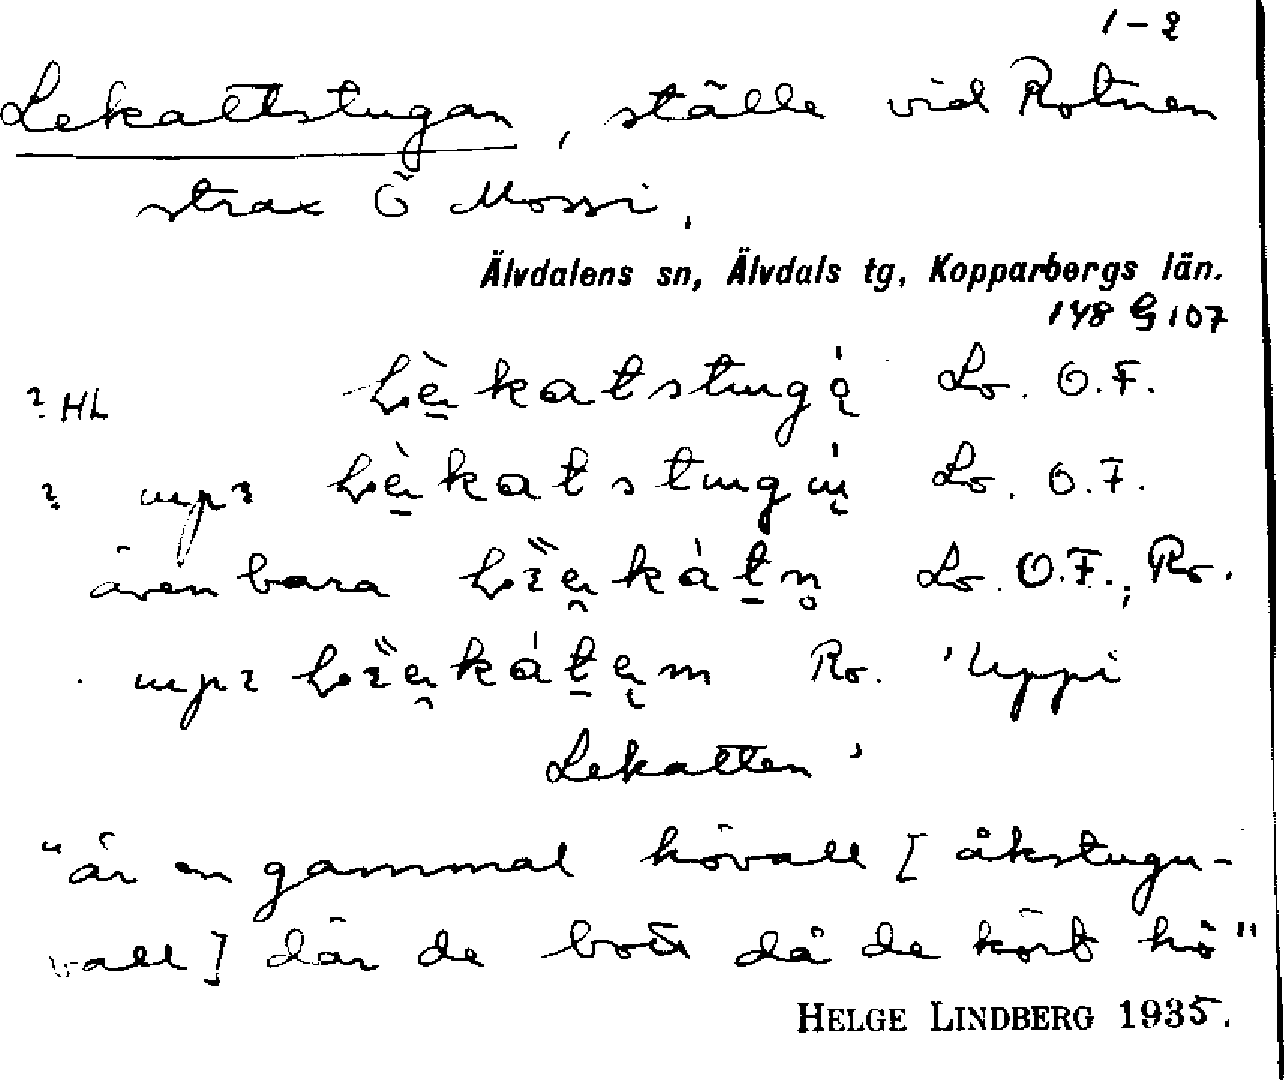 1-2
Lekattstugan, ställe vid Rotnen
strax Ö Mossi.
Älvdalens sn, Älvdals tg, Kopparbergs län.
148 G 107
? HL Lo. O.F.
? Lo. O.F.
även bara Lo. O.F.; Ro.
Ro. 'Uppi
Lekatten'
"är en gammal hövall [åkstugu-
vall] där de bott då de kört hö"
HELGE LINDBERG 1935.